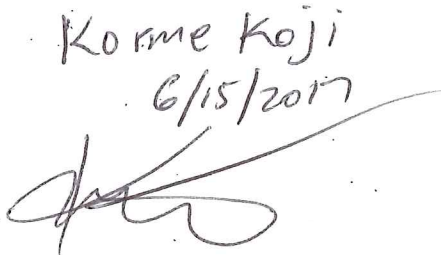 Korme Koji
6/15/2017